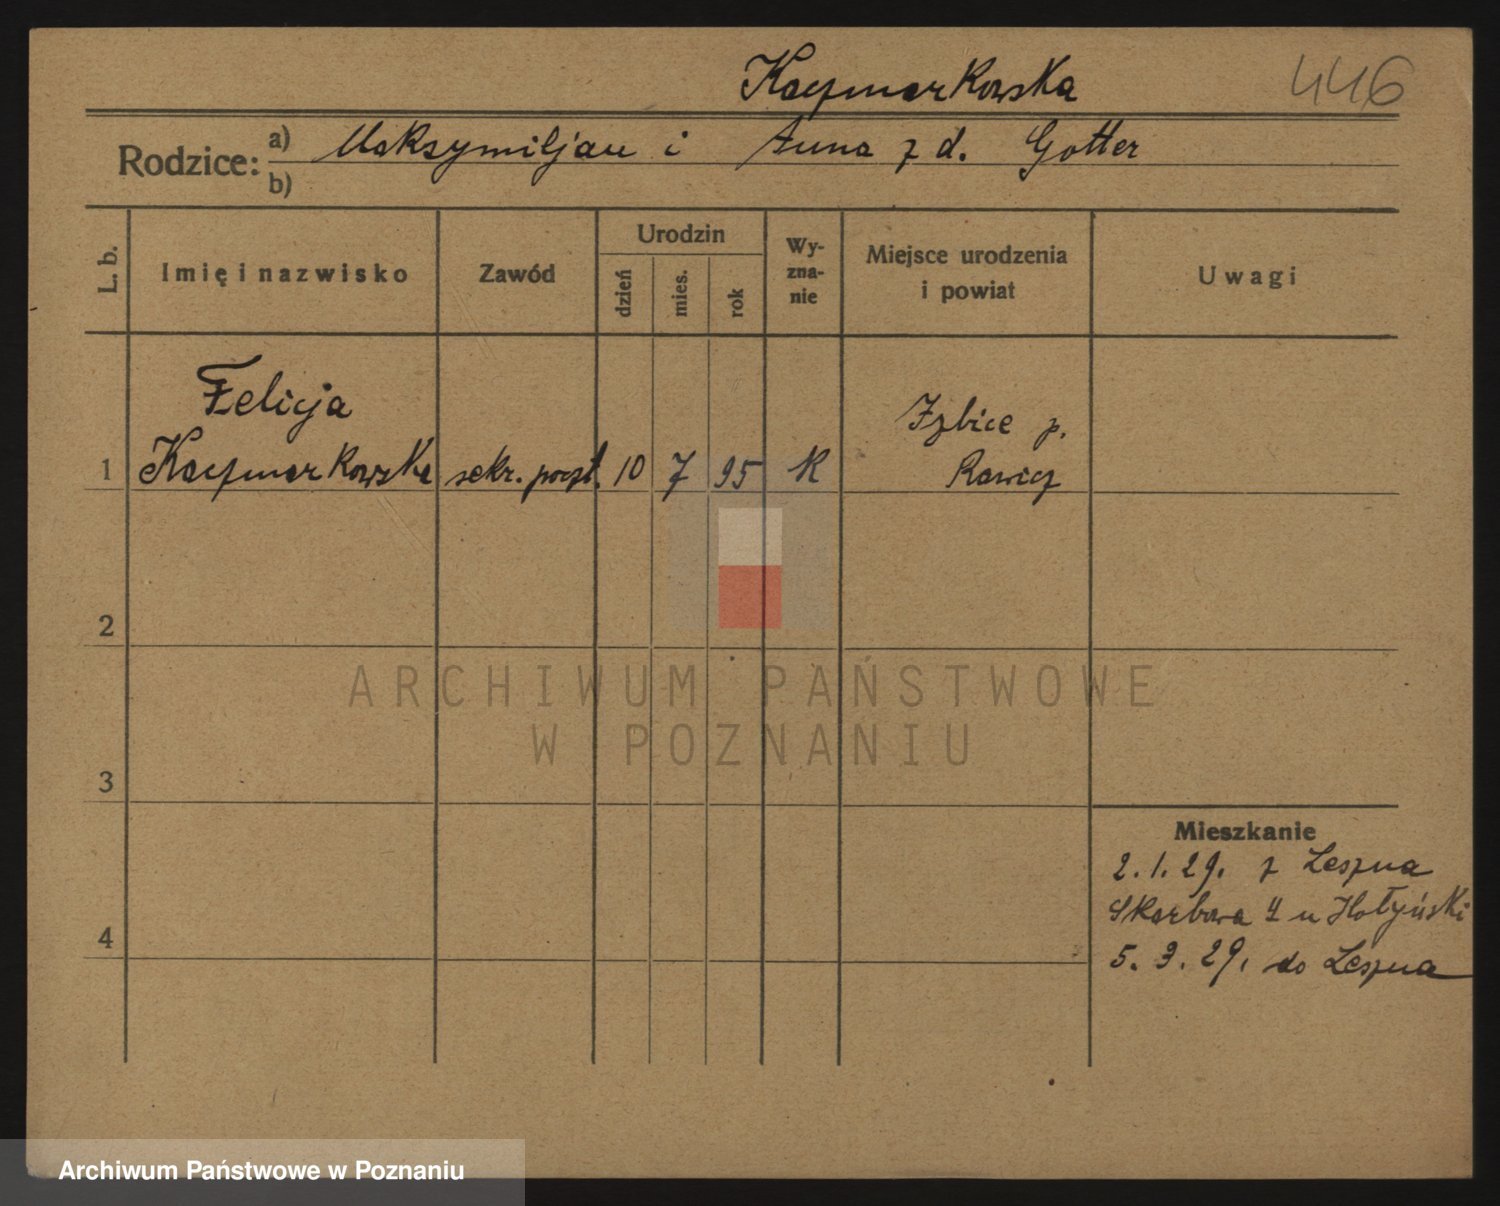 Kaczmarkowska
446
Rodzice: a) Maksymiljan i Anna z d. Gotter
b)
L. b.
Imię i nazwisko
Zawód
Urodzin
dzień
mies.
rok
Wy-
zna-
nie
Miejsce urodzenia
i powiat
Uwagi
1
Felicja
Kaczmarkowska
sekr. poczt.
10
7
95
K
Izbice p.
Rawicz
2
3
4
Mieszkanie
2.1.29. z Leszna
Skarbowa 4 u Hołyński
5.3.29. do Leszna
ARCHIWUM PAŃSTWOWE
W POZNANIU
Archiwum Państwowe w Poznaniu